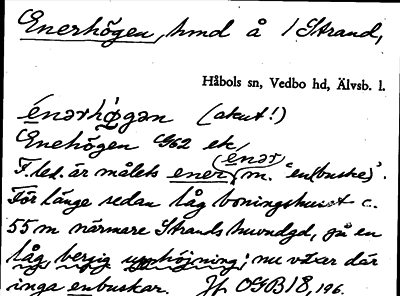 Enerhögen, hmd å 1 Strand,
Håbols sn, Vedbo hd, Älvsb. l.
énərhö̀gən (akut!)
Enehögen G62 ek
F.led. är målets ener (enər) m. "en(buske)".
För länge sedan låg boningshuset c.
55 m närmare Strands huvudgd, på en
låg, bergig upphöjning; nu växer där
inga enbuskar. Jfr OGB 18, 196.